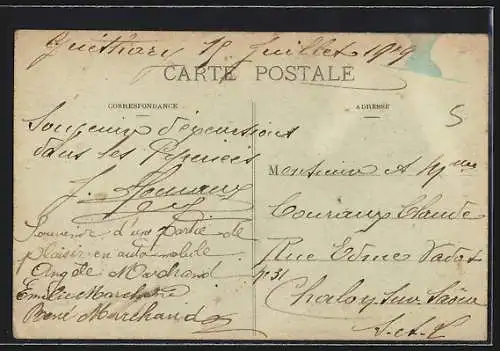 Guéthary 15 Juillet 1919
CARTE POSTALE
CORRESPONDANCE
Souvenir d'excursions
dans les Pyrénées
J.
Souvenir d'une partie de
plaisir en automobile
Angèle Marchand
Emilie Marchand
René Marchand
ADRESSE
5
Monsieur et Mme
Couraux Claude
Rue Edme
n° 31
Chalon sur Saône
S.-et-L